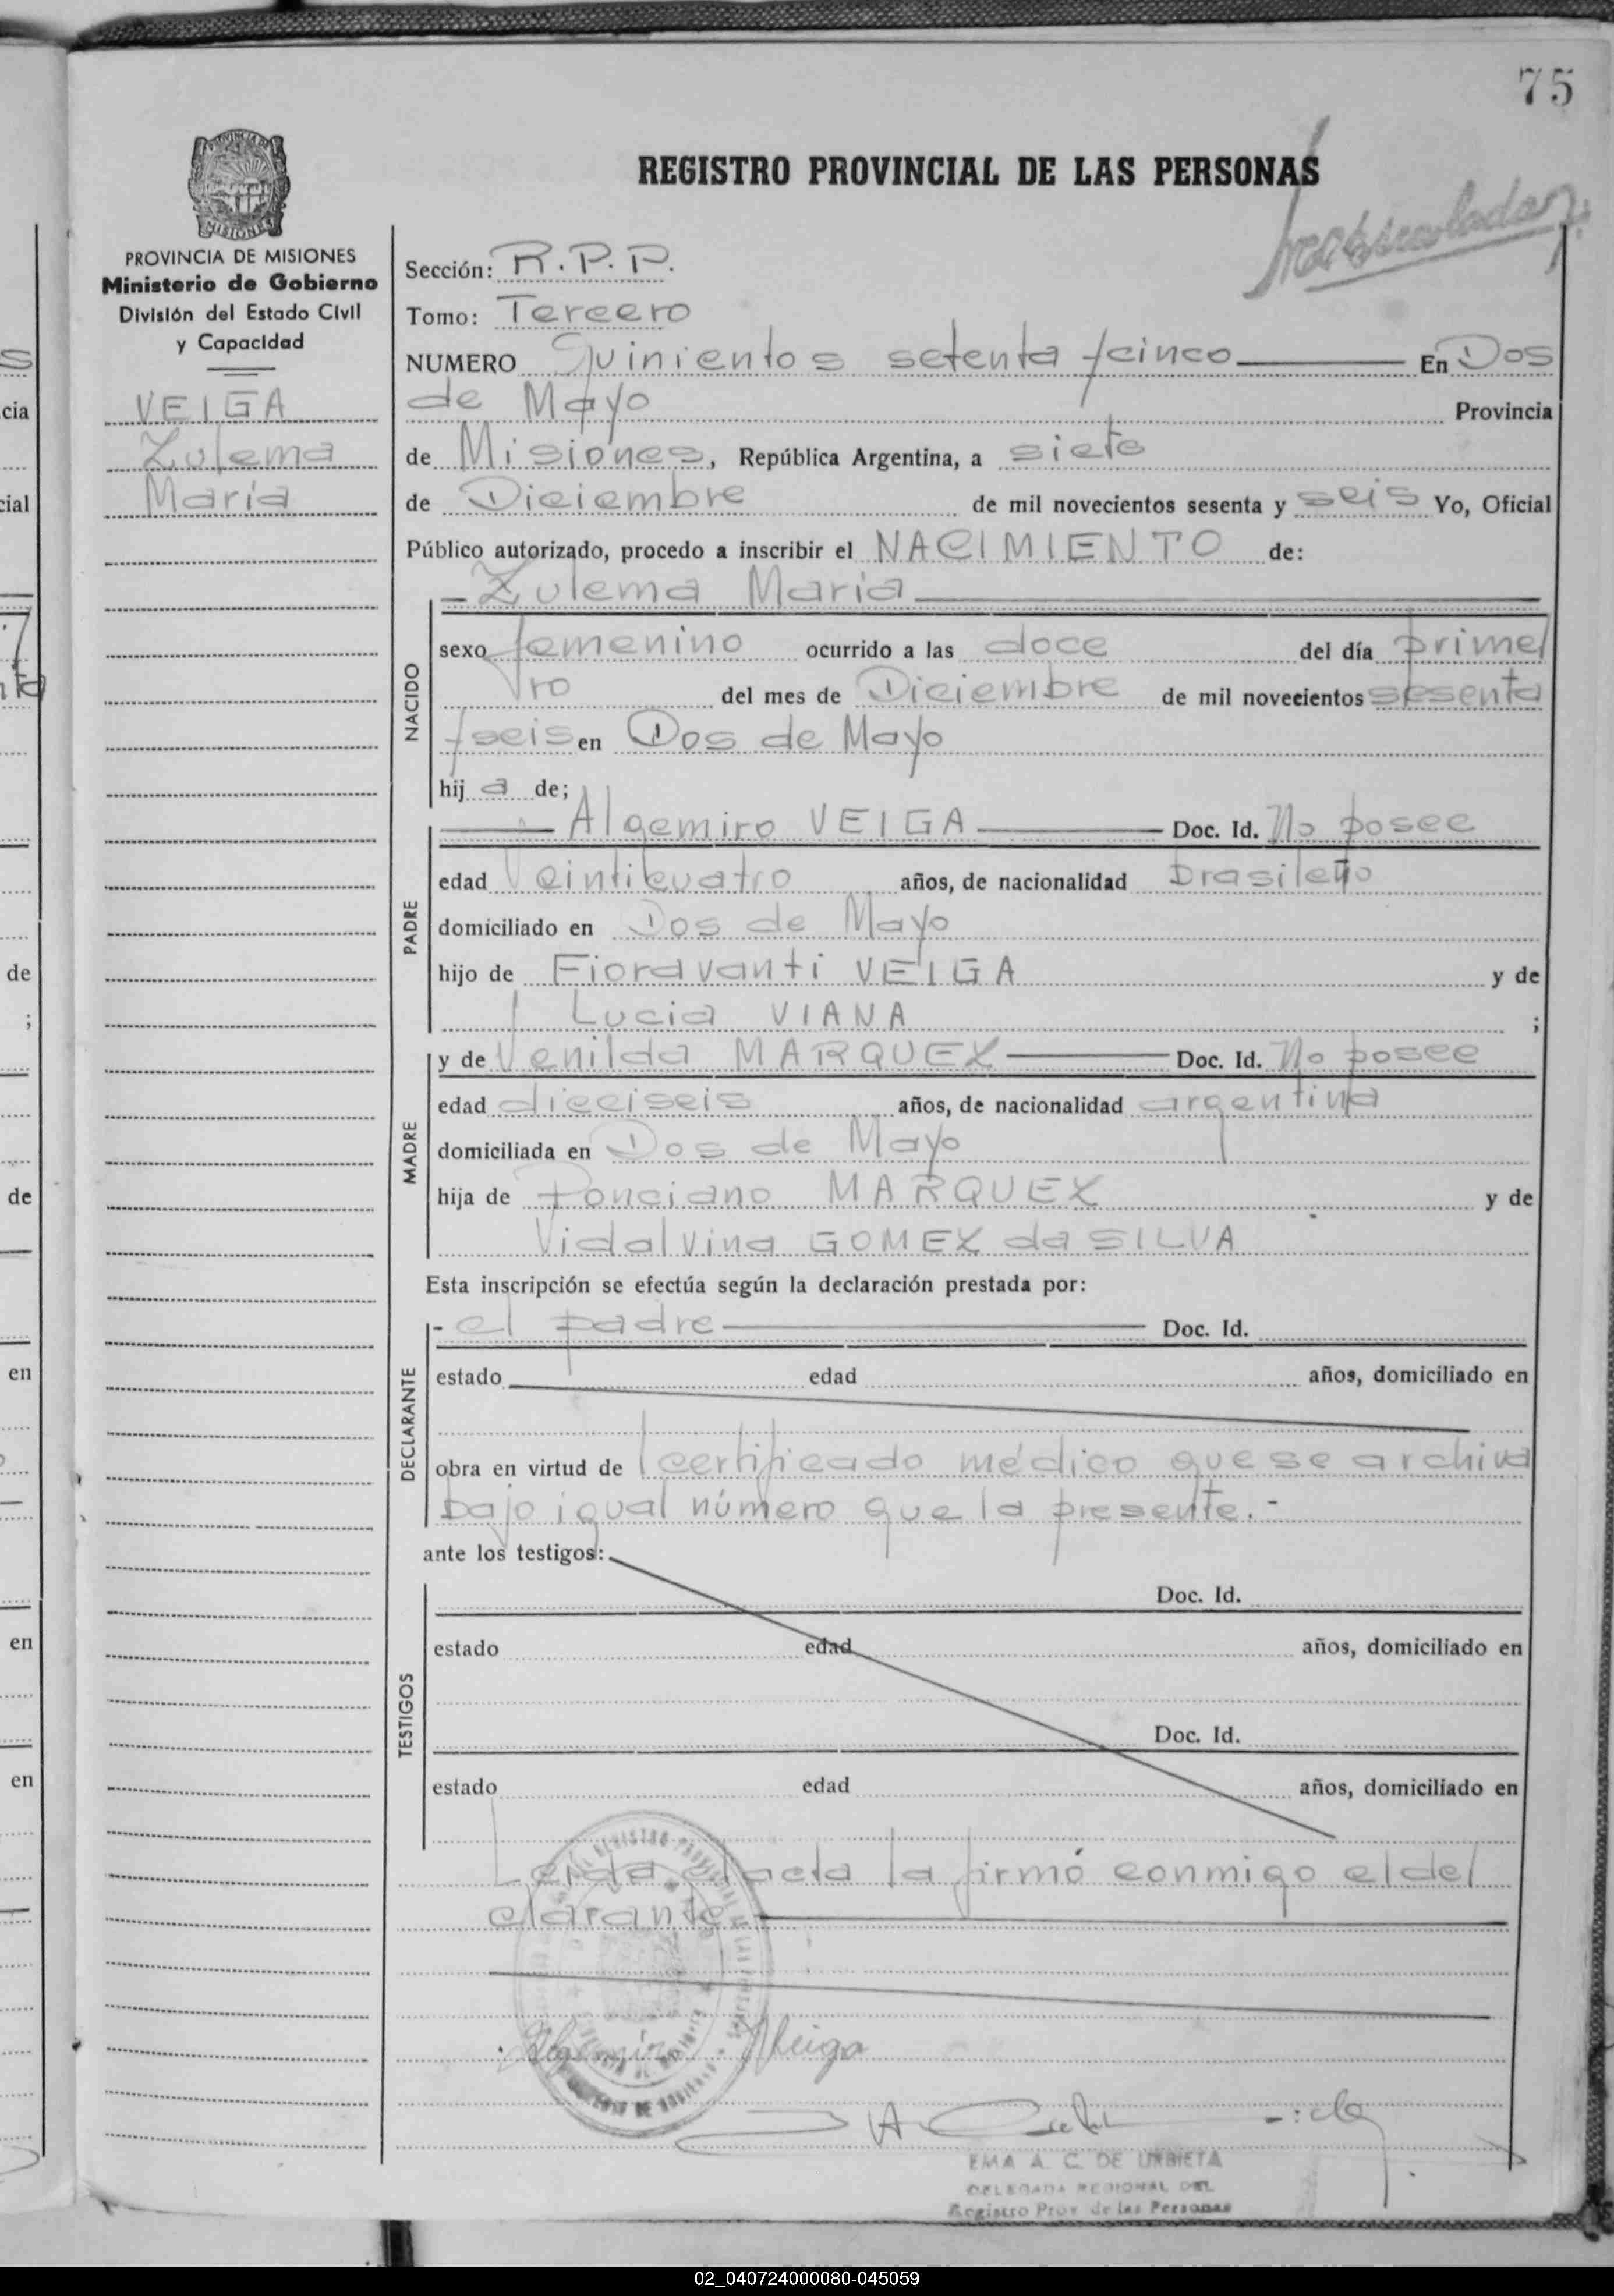 75
REGISTRO PROVINCIAL DE LAS PERSONAS
PROVINCIA DE MISIONES
Ministerio de Gobierno
División del Estado Civil
y Capacidad
VEIGA
Zulema
María
Sección: R.P.P.
Tomo: Tercero
NUMERO Quinientos setenta y cinco En Dos
de Mayo Provincia
de Misiones, República Argentina, a siete
de Diciembre de mil novecientos sesenta y seis Yo, Oficial
Público autorizado, procedo a inscribir el NACIMIENTO de:
- Zulema María
NACIDO
sexo femenino ocurrido a las doce del día prime
ro del mes de Diciembre de mil novecientos sesenta
y seis en Dos de Mayo
hij a de;
PADRE
Algemiro VEIGA Doc. Id. No posee
edad Veinticuatro años, de nacionalidad brasileño
domiciliado en Dos de Mayo
hijo de Fioravanti VEIGA y de
Lucia VIANA ;
MADRE
y de Venilda MARQUEZ Doc. Id. No posee
edad dieciseis años, de nacionalidad argentina
domiciliada en Dos de Mayo
hija de Ponciano MARQUEZ y de
Vidalvina GOMEZ da SILVA
Esta inscripción se efectúa según la declaración prestada por:
DECLARANTE
- el padre Doc. Id.
estado edad años, domiciliado en
obra en virtud de certificado médico que se archiva
bajo igual número que la presente.-
ante los testigos:
TESTIGOS
Doc. Id.
estado edad años, domiciliado en
Doc. Id.
estado edad años, domiciliado en
Leida el acta la firmó conmigo el de
clarante
Algemiro Veiga
EMA A. C. DE URBIETA
DELEGADA REGIONAL DEL
Registro Prov de las Personas
cia
cial
de
;
de
en
en
en
02_040724000080-045059